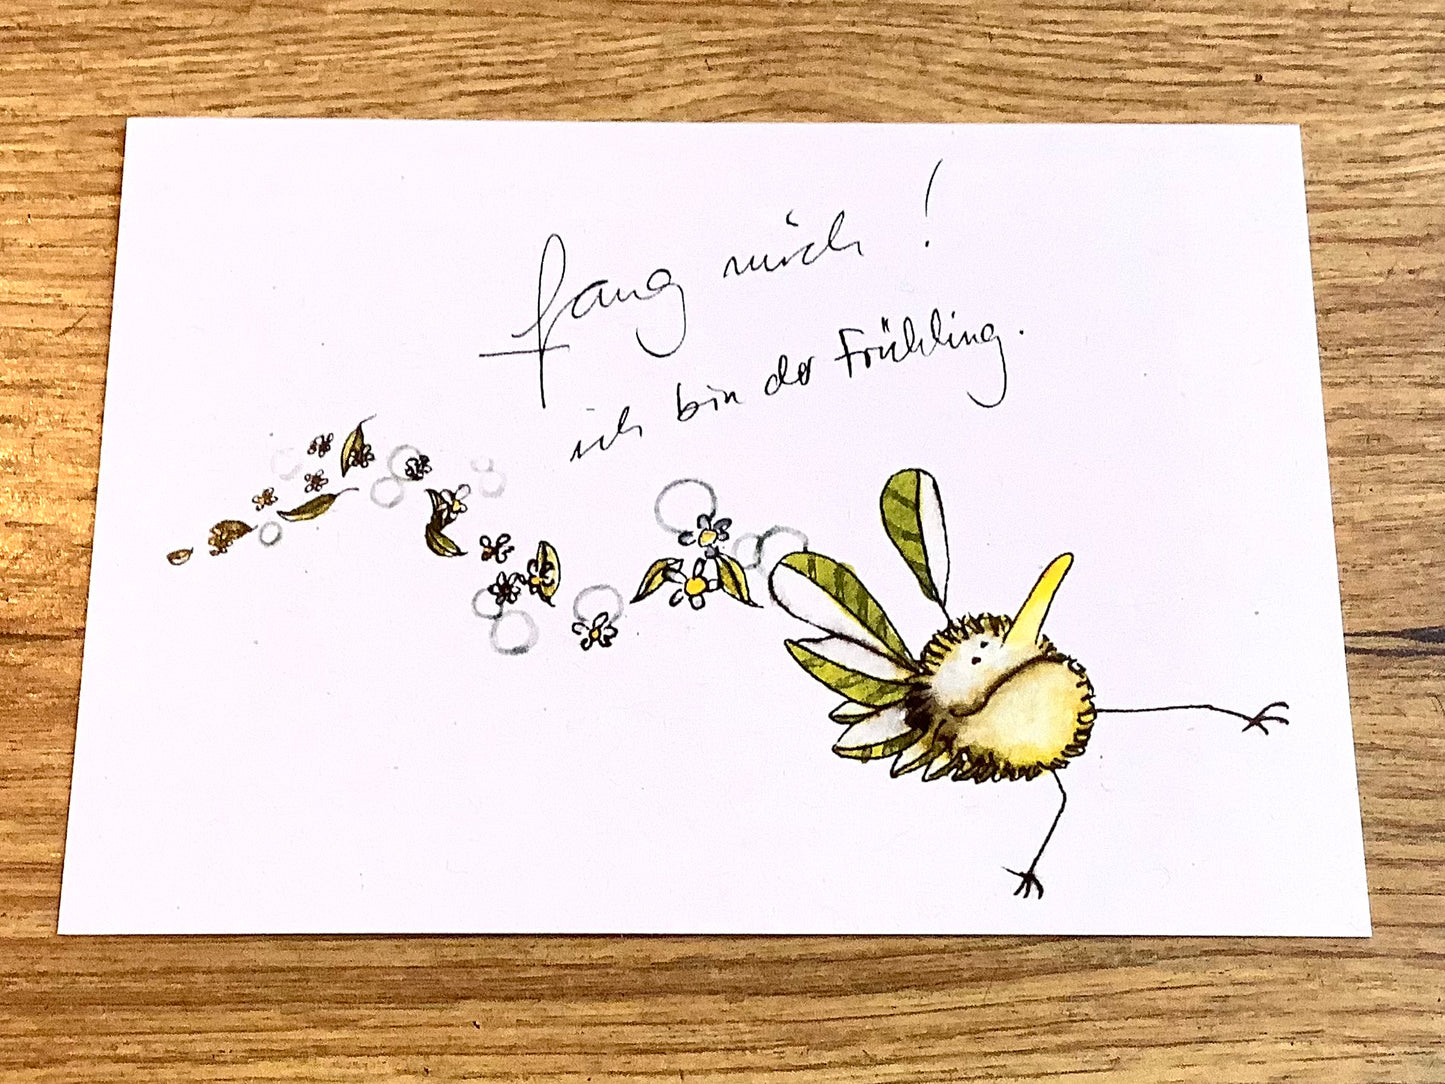 fang mich!
ich bin der Frühling.